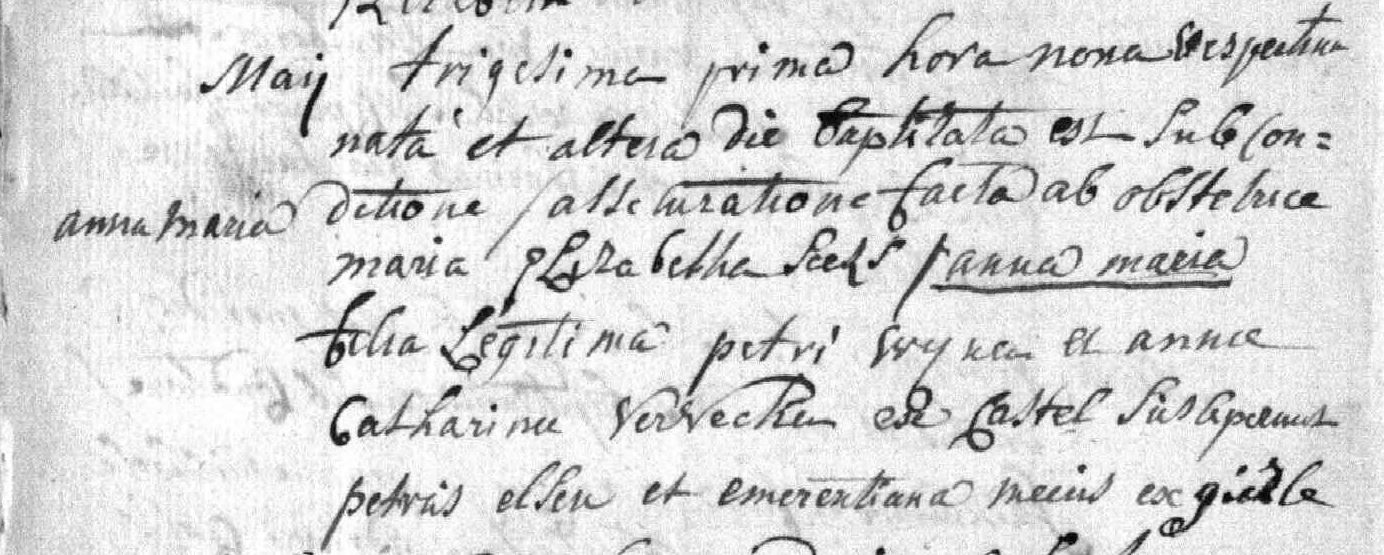 Maij trigesima prima hora nona vespertina
nata et altera die baptitata est sub con=
anna maria ditione assecuratione facta ab obstetrice
maria Elizabetha anna maria
filia Legitima petri et annae
Catharinae Vervecken ex Castel susceperunt
petrus elsen et emerentiana ex